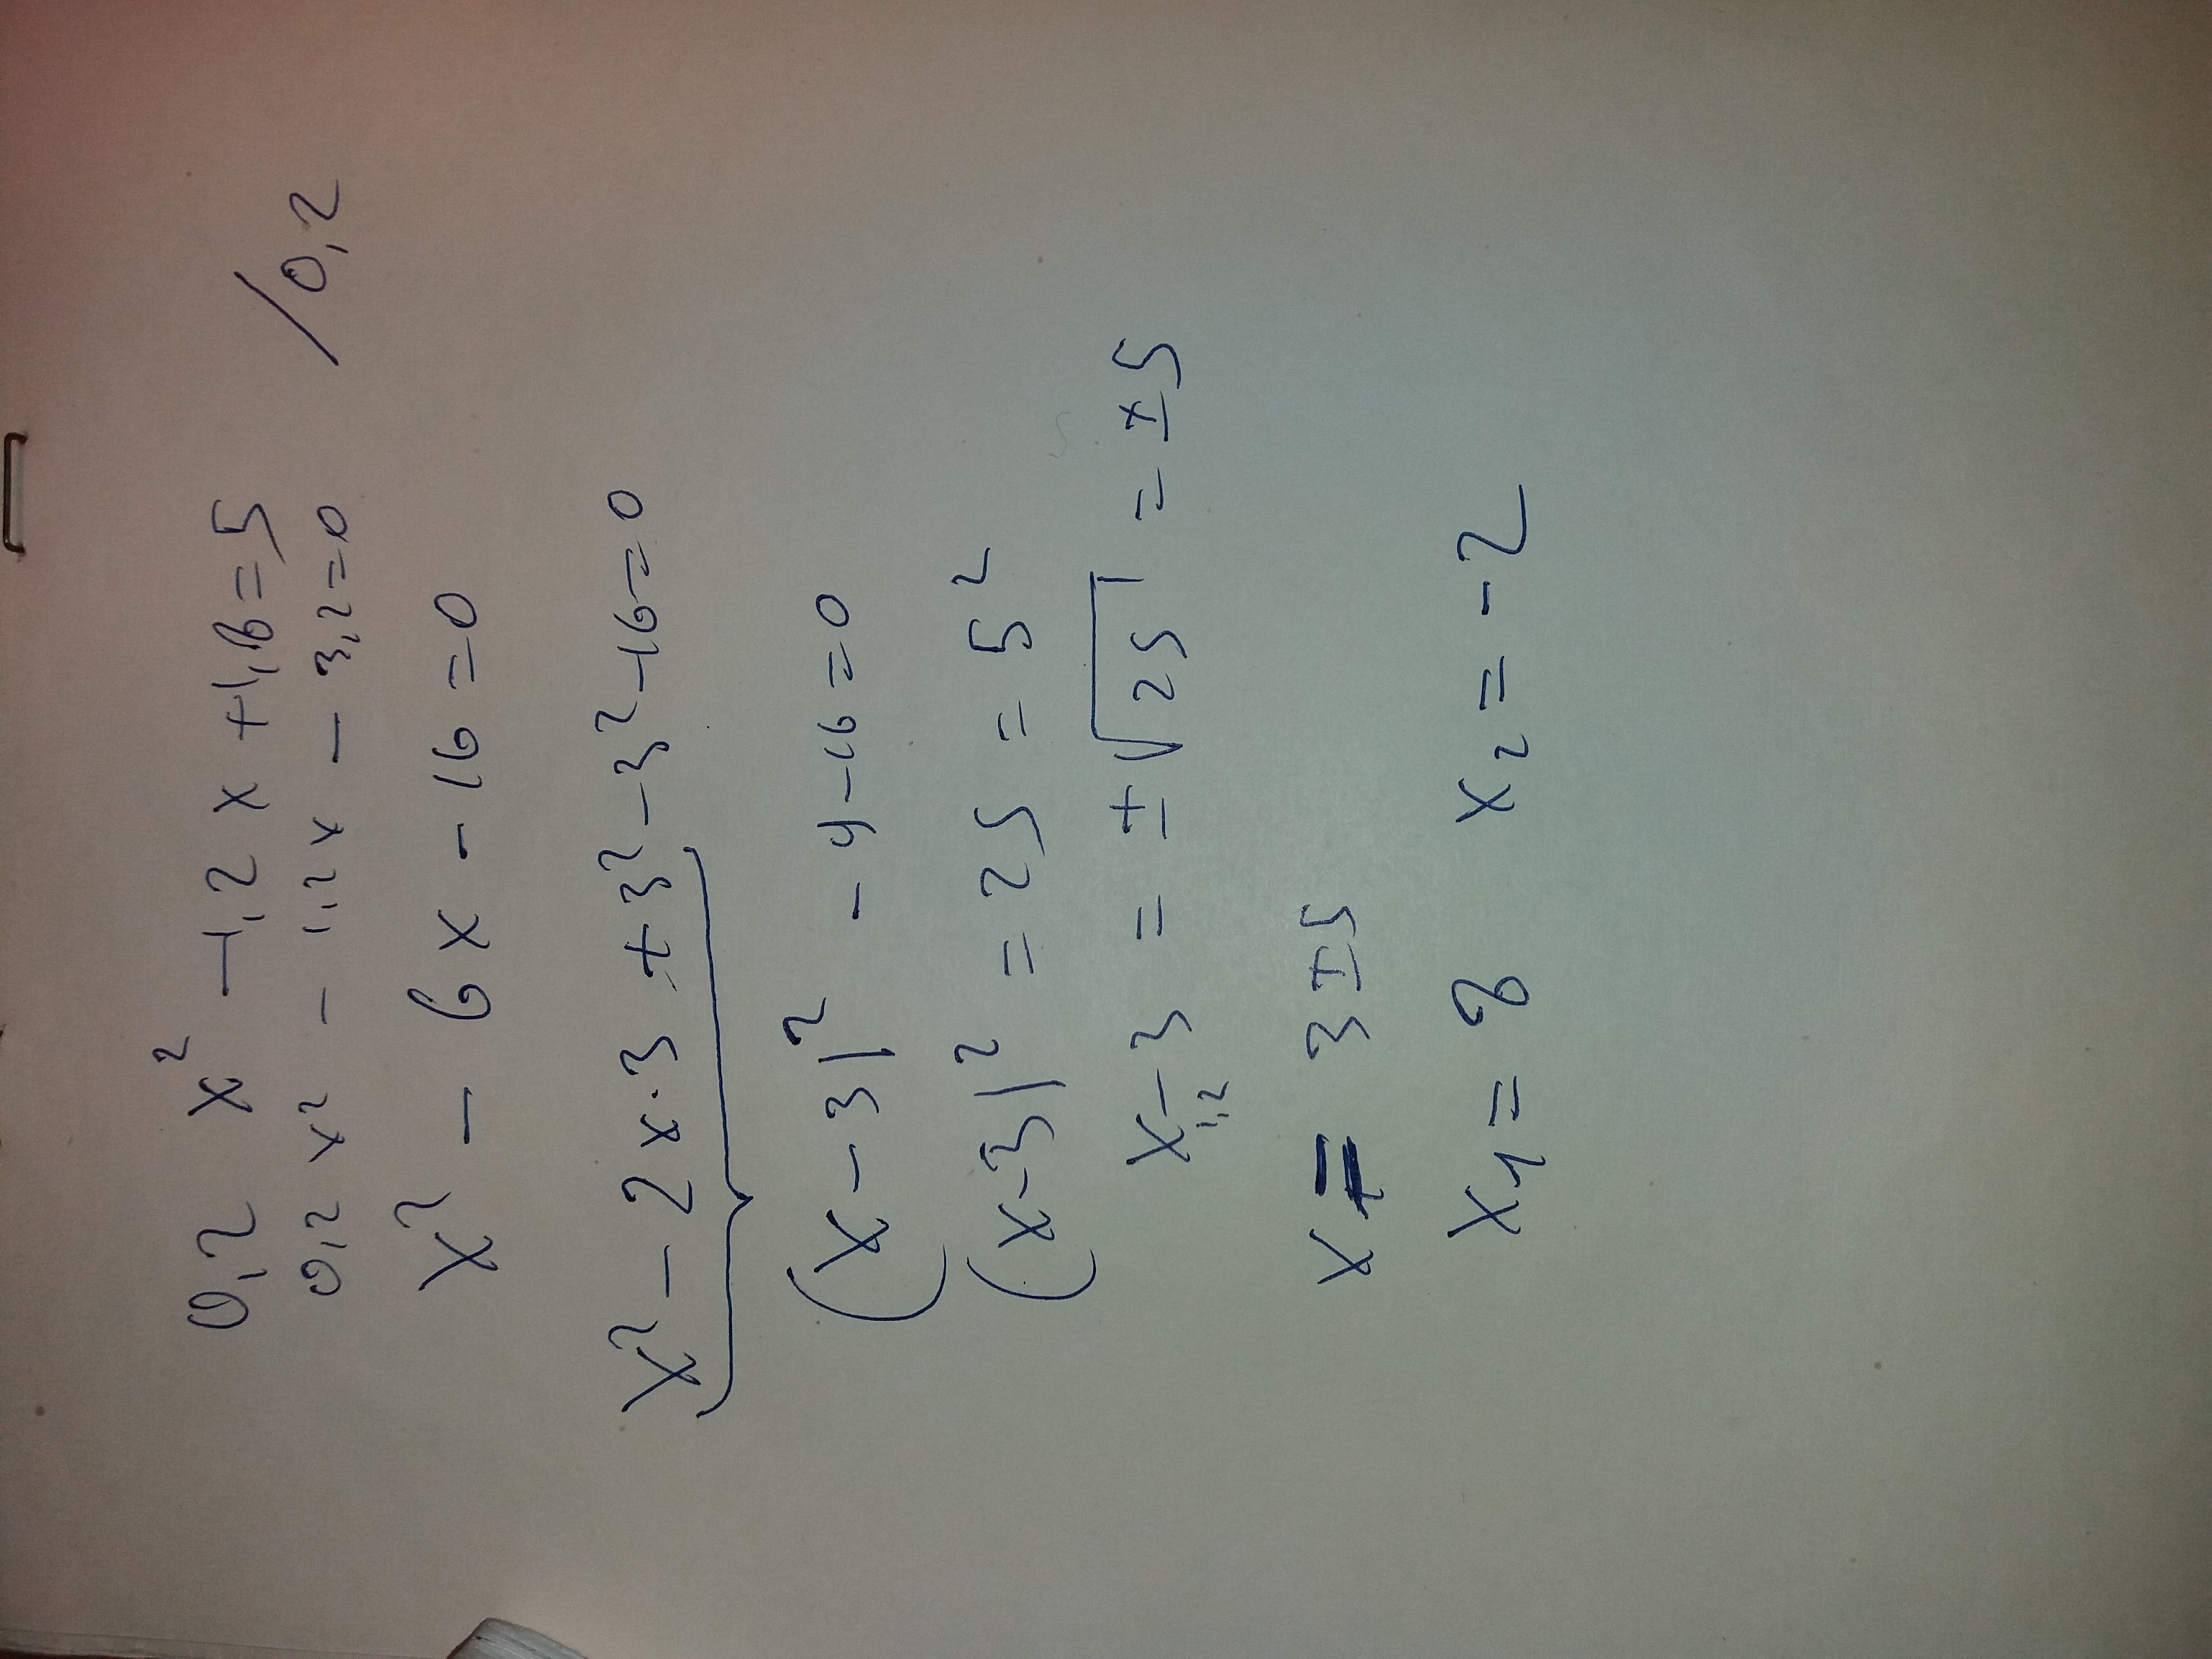 0,2 x² - 1,2 x + 1,8 = 5
0,2 x² - 1,2 x - 3,2 = 0 /0,2
x² - 6x - 16 = 0
x² - 2x·3 + 3² - 3² - 16 = 0
(x - 3)² - 9 - 16 = 0
(x-3)² = 25 = 5²
x₁,₂ - 3 = ± √25 = ±5
x = 3 ± 5
x₁ = 8 x₂ = -2